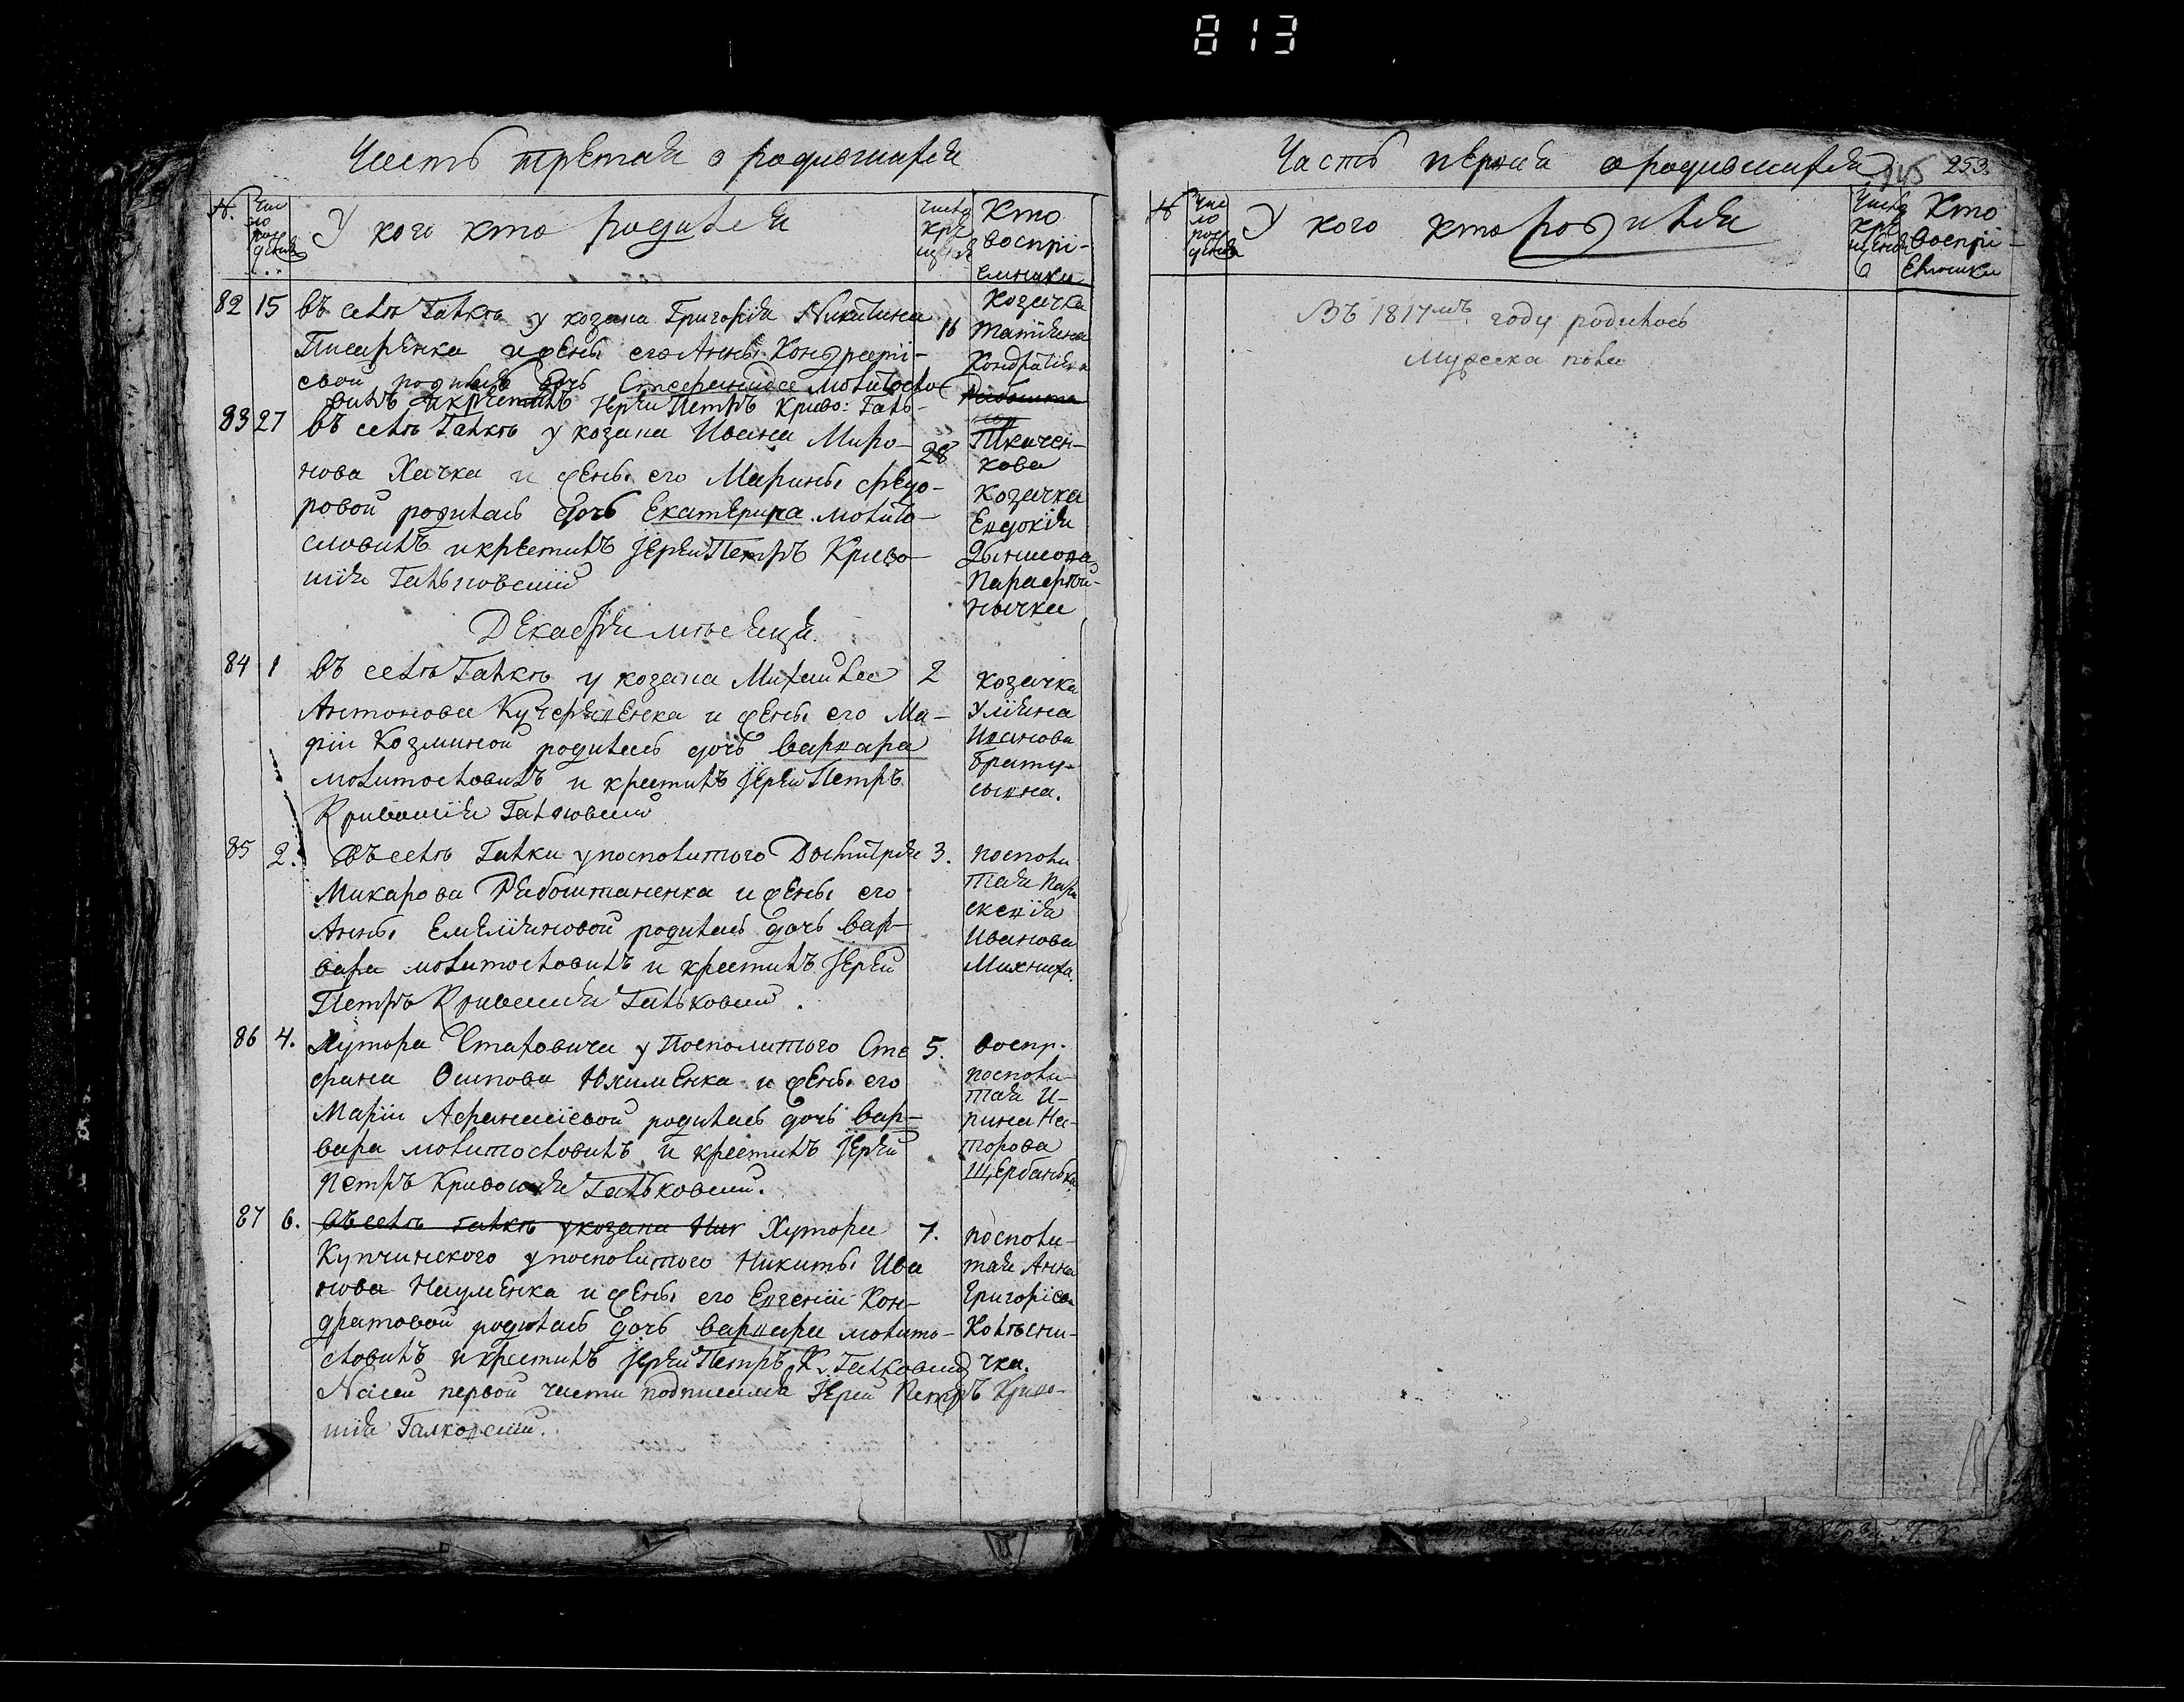 813
Часть третая о родившихся
№.
Чис
ло
рож
дения
У кого кто родился
Число
кре
щен
Кто
воспрі-
емники
82 15 въ селѣ Галкѣ у козака Григорія Никитина
Писаренка и жены его Анны Кондраті-
евой родилась дочь Стефанида молитвосло
вилъ и крестилъ Іерей Петръ Криво: Галь-
16
козачка
Татіяна
Кондратіева
Ткачен-
кова
83 27 въ селѣ Галкѣ у козака Ивана Миро-
нова Хачка и жены его Марины Федо-
ровой родилась дочь Екатерина молитво-
словилъ и крестилъ Іерей Петръ Криво-
шія Гальковскій
28
козачка
Евдокія
Парафій-
ничка
Декабря мѣсяца.
84 1 въ селѣ Галкѣ у козака Михайла
Антонова Кучерявенка и жены его Ма-
ріи Козминой родилась дочь Варвара
молитвословилъ и крестилъ Іерей Петръ
Кривошія Гальковскій
2
козачка
Уліяна
Иванова
Брату-
85 2. Въ селѣ Галки у посполитого Дмитрія
Макарова Рабоштаненка и жены его
Анны Емеліяновой родилась дочь Вар-
вара молитвословилъ и крестилъ Іерей
Петръ Кривошія Гальковскій.
3.
посполи
тая Пара
скевія
Иванова
Михниха.
86 4. Хутора у Посполитого Сте
фана Осипова Юхименка и жены его
Маріи Афанасіевой родилась дочь Вар-
вара молитвословилъ и крестилъ Іерей
Петръ Кривошія Гальковскій.
5.
воспр.
посполи-
тая И-
рина
Щербанька
87 6. въ селѣ Галкѣ у козака Ник Хутора
Купчинского у посполитого Никиты Ива
нова Науменка и жены его Евгеніи Кон-
дратовой родилась дочь Варвара молитво-
словилъ и крестилъ Іерей Петръ К. Галковскій
7.
посполи-
тая Анна
Григоріева
Колѣсни-
чка.
К сей первой части подписался Іерей Петръ Криво-
шія Галковскій.
Часть первая о родившихся
253
№
Чис
ло
рож
дения
У кого кто родился
Число
кре
щения
Кто
воспрі-
емники
Въ 1817мъ году родилось
Мужеска пола